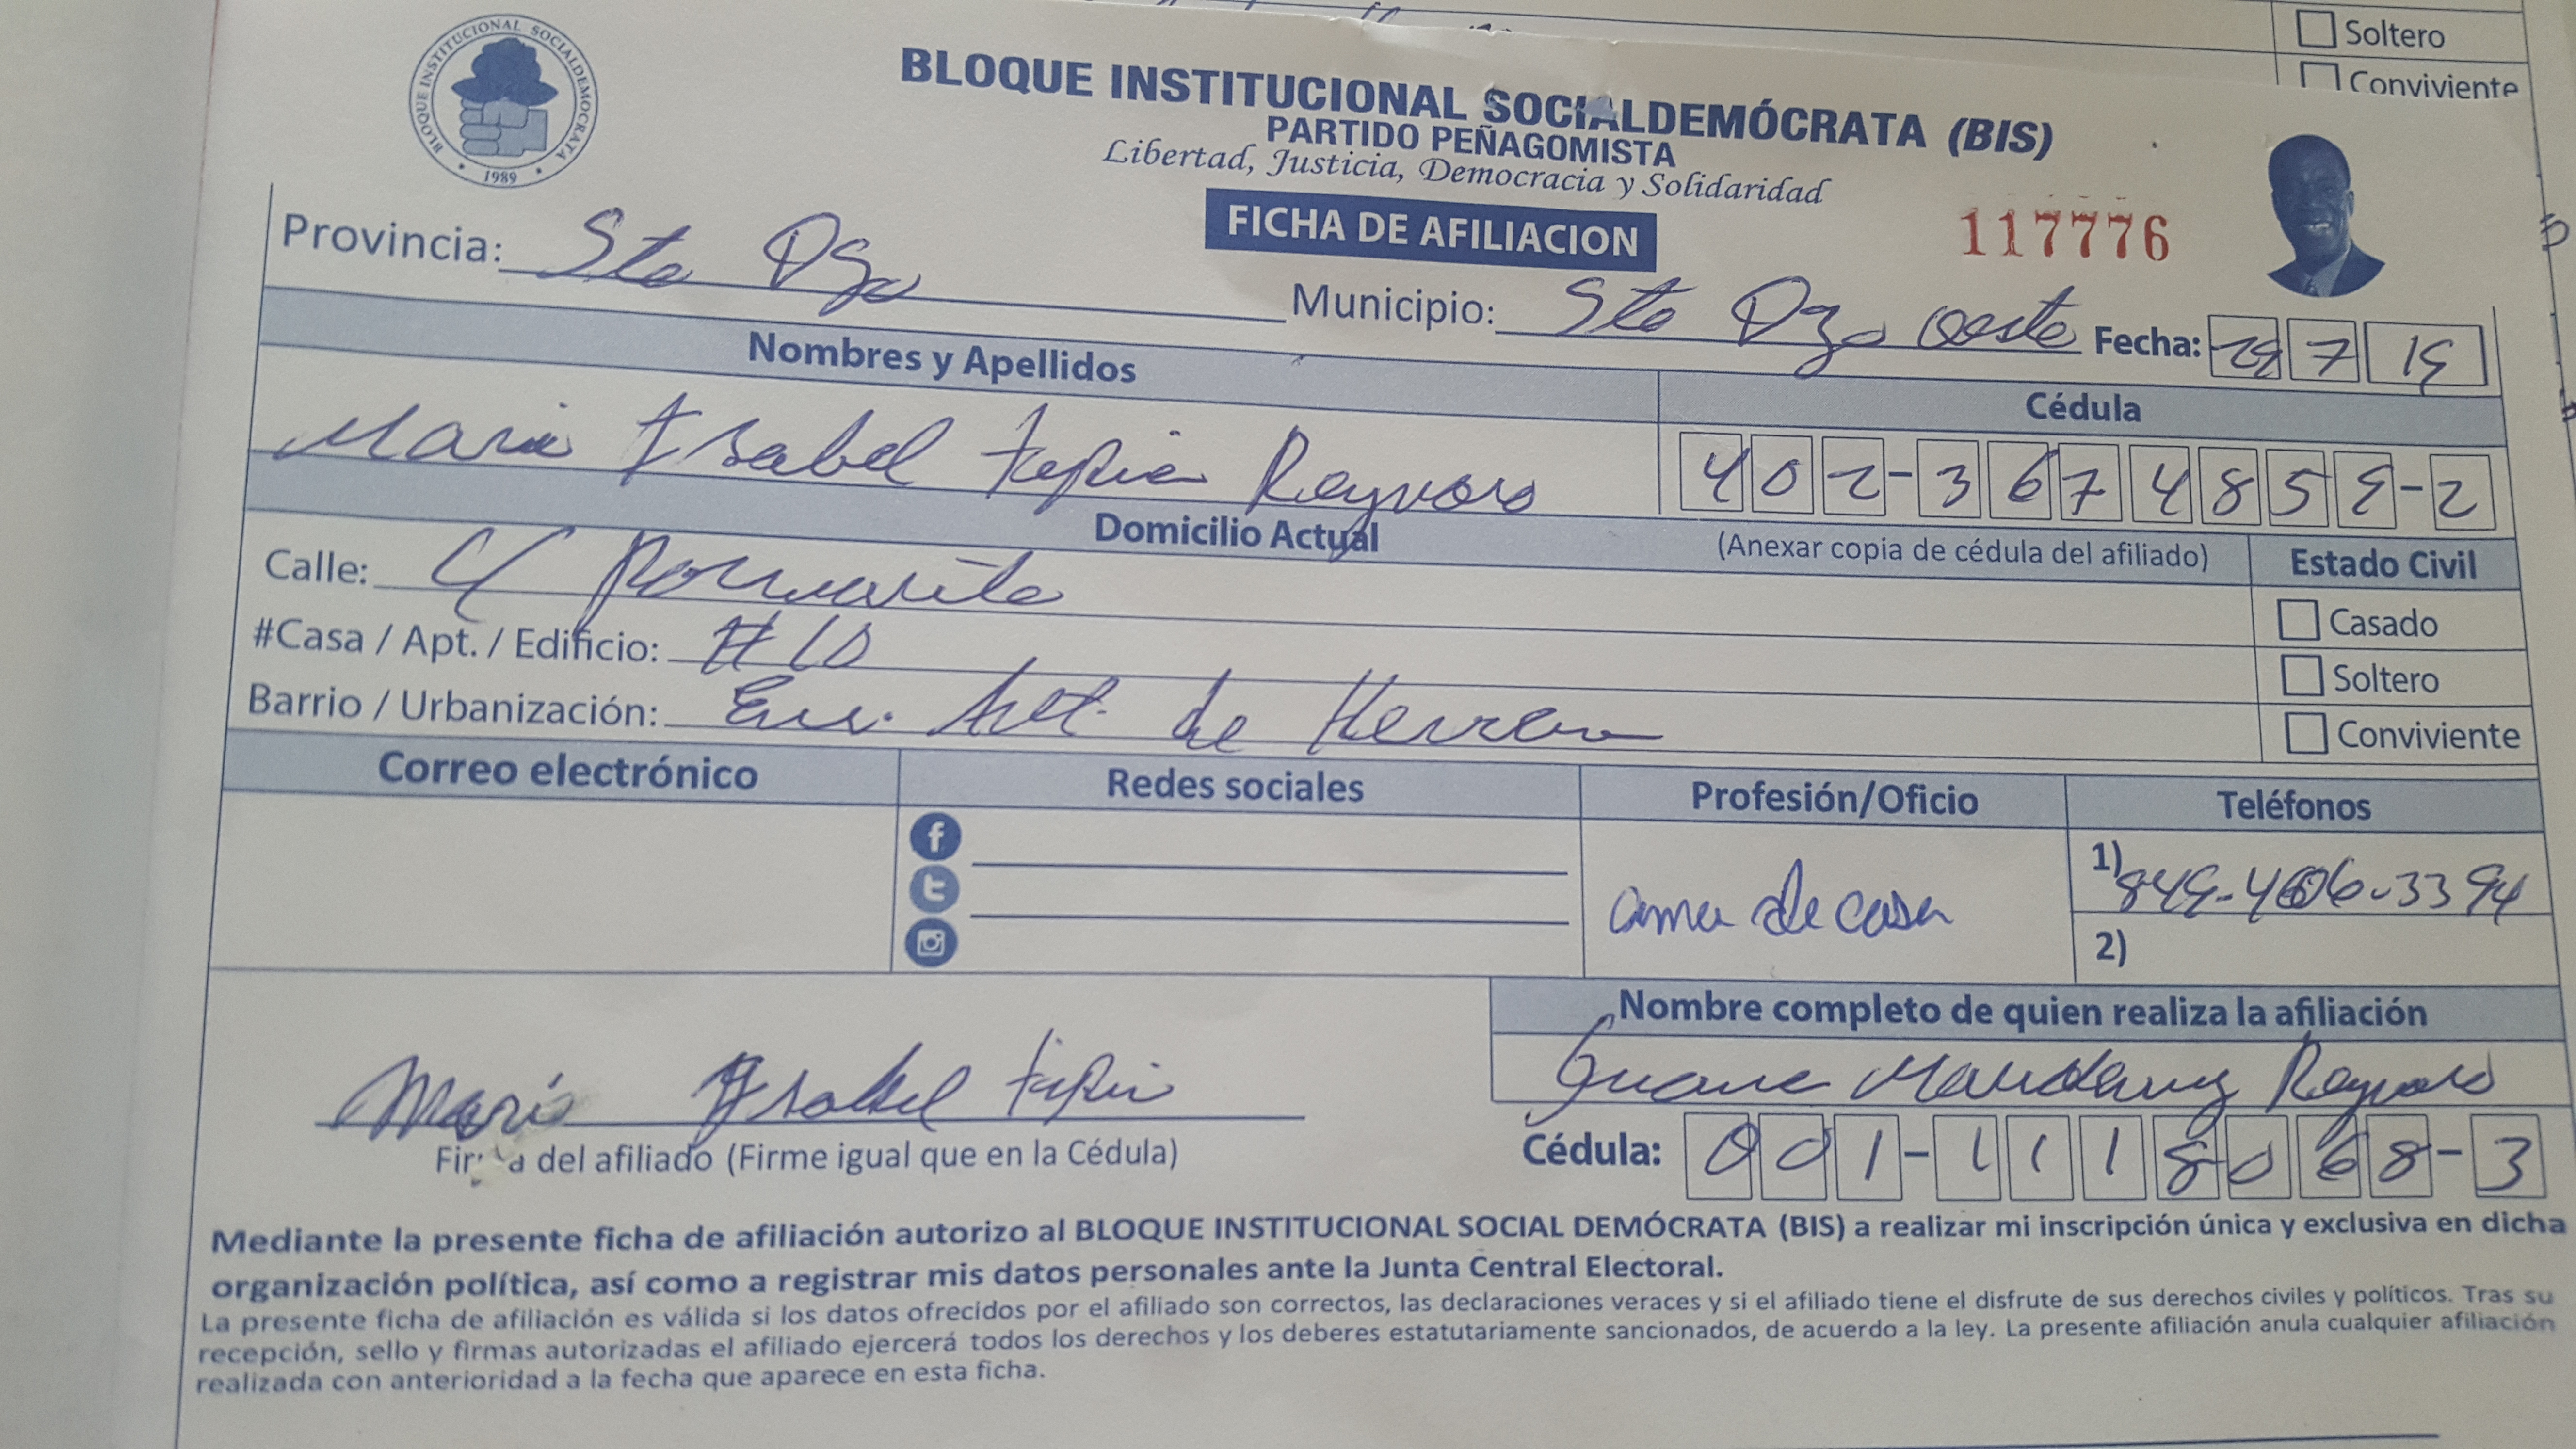 Soltero
Conviviente
BLOQUE INSTITUCIONAL SOCIALDEMOCRATA
1989
BLOQUE INSTITUCIONAL SOCIALDEMÓCRATA (BIS)
PARTIDO PEÑAGOMISTA
Libertad, Justicia, Democracia y Solidaridad
FICHA DE AFILIACION
117776
Provincia: Sto Dgo
Municipio: Sto Dgo oeste Fecha: 29 7 19
Nombres y Apellidos
Cédula
Maria Isabel tapia Reynoso
402-3674859-2
Domicilio Actual
(Anexar copia de cédula del afiliado)
Estado Civil
Calle: C/
Casado
#Casa / Apt. / Edificio: #10
Soltero
Barrio / Urbanización: de Herrera
Conviviente
Correo electrónico
Redes sociales
Profesión/Oficio
Teléfonos
ama de casa
1) 849-406-3394
2)
Nombre completo de quien realiza la afiliación
Reynoso
Maria Isabel tapia
Firma del afiliado (Firme igual que en la Cédula)
Cédula: 001-1118068-3
Mediante la presente ficha de afiliación autorizo al BLOQUE INSTITUCIONAL SOCIAL DEMÓCRATA (BIS) a realizar mi inscripción única y exclusiva en dicha
organización política, así como a registrar mis datos personales ante la Junta Central Electoral.
La presente ficha de afiliación es válida si los datos ofrecidos por el afiliado son correctos, las declaraciones veraces y si el afiliado tiene el disfrute de sus derechos civiles y políticos. Tras su
recepción, sello y firmas autorizadas el afiliado ejercerá todos los derechos y los deberes estatutariamente sancionados, de acuerdo a la ley. La presente afiliación anula cualquier afiliación
realizada con anterioridad a la fecha que aparece en esta ficha.